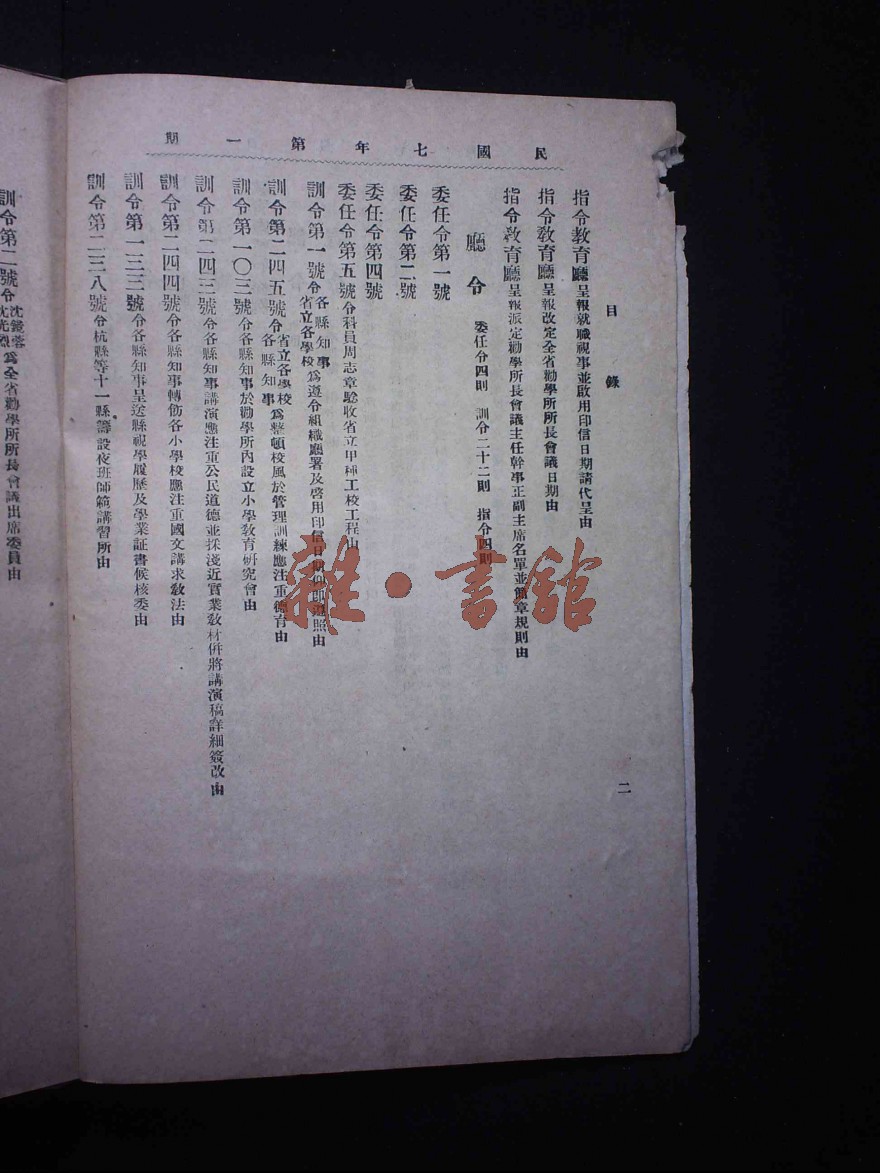 民國七年第一期
目錄
二
指令教育廳呈報就職視事並啟用印信日期請代呈由
指令教育廳呈報改定全省勸學所所長會議日期由
指令教育廳呈報派定勸學所長會議主任幹事正副主席名單並簡章規則由
廳令 委任令四則 訓令二十二則 指令四則
委任令第一號
委任令第二號
委任令第四號
委任令第五號令科員周志章驗收省立甲種工校工程由
訓令第一號令各縣知事省立各學校爲遵令組織廳署及啓用印信日期仰即遵照由
訓令第二四五號令省立各學校各縣知事爲整頓校風於管理訓練應注重德育由
訓令第一〇三號令各縣知事於勸學所內設立小學教育研究會由
訓令第二四三號令各縣知事講演應注重公民道德並採淺近實業教材併將講演稿詳細簽改由
訓令第二四四號令各縣知事轉飭各小學校應注重國文講求教法由
訓令第一三三號令各縣知事呈送縣視學履歷及學業証書候核委由
訓令第二三八號令杭縣等十一縣籌設夜班師範講習所由
訓令第二號令沈光烈爲全省勸學所所長會議出席委員由
雜·書館